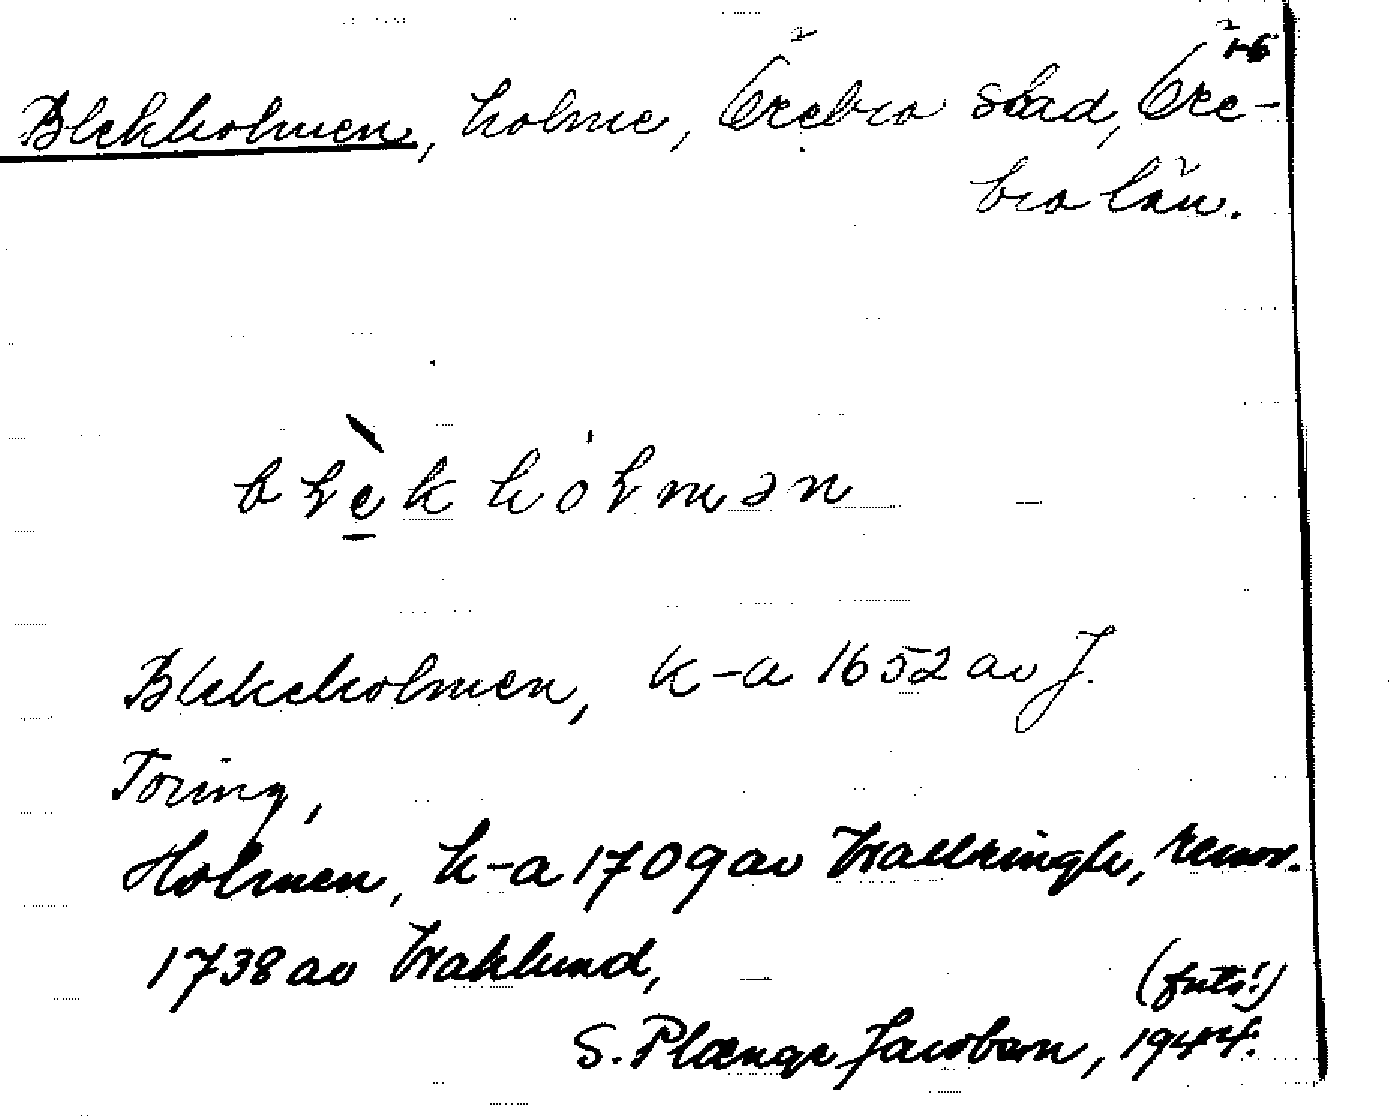 1-6
Blekholmen, holme, Örebro stad, Öre-
bro län.
blèkhólmən
Blekeholmen, k-a 1652 av J.
Toring,
Holmen, k-a 1709 av Wallringh, renov.
1738 av Waklund,
(forts!)
S. Plænge Jacobson, 1944.